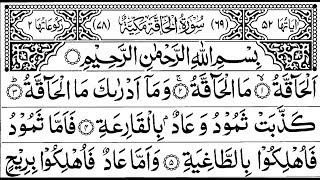 اٰيَاتُهَا ٥٢ (٦٩) سُوْرَةُ الْحَآقَّةِ مَكِّيَّةٌ (٧٨) رُكُوْعَاتُهَا ٢
بِسْمِ اللّٰهِ الرَّحْمٰنِ الرَّحِيْمِ
اَلْحَآقَّةُ ۙ﴿١﴾ مَا الْحَآقَّةُ ۚ﴿٢﴾ وَمَآ اَدْرٰىكَ مَا الْحَآقَّةُ ؕ﴿٣﴾
كَذَّبَتْ ثَمُوْدُ وَ عَادٌۢ بِالْقَارِعَةِ ﴿٤﴾ فَاَمَّا ثَمُوْدُ
فَاُهْلِكُوْا بِالطَّاغِيَةِ ﴿٥﴾ وَاَمَّا عَادٌ فَاُهْلِكُوْا بِرِيْحٍ